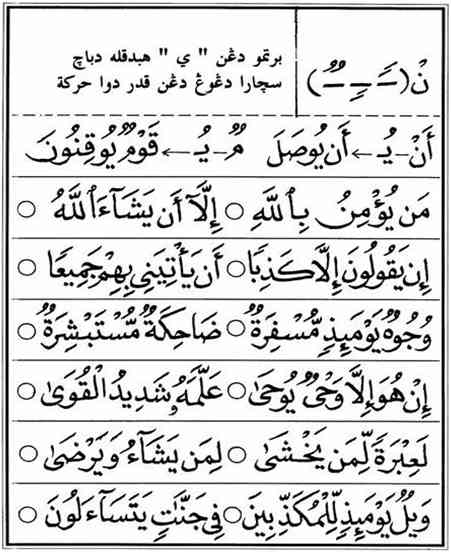 نْ (ـًـ ـٍـ ـٌـ)
برتمو دڠن " ي " هندقله دباچ
سچارا دڠوڠ دڠن قدر دوا حركة
أَنْ - يُـ ← أَن يُوصَلَ مٌ - يُـ ← قَوْمٌ يُوقِنُونَ
مَن يُؤْمِنُ بِٱللَّهِ ○ إِلَّآ أَن يَشَآءَ ٱللَّهُ ○
إِن يَقُولُونَ إِلَّا كَذِبًا ○ أَن يَأْتِيَنِي بِهِمْ جَمِيعًا ○
وُجُوهٌ يَوْمَئِذٍ مُّسْفِرَةٌ ○ ضَاحِكَةٌ مُّسْتَبْشِرَةٌ ○
إِنْ هُوَ إِلَّا وَحْىٌ يُوحَىٰ ○ عَلَّمَهُۥ شَدِيدُ الْقُوَىٰ ○
لَعِبْرَةً لِّمَن يَخْشَىٰ ○ لِمَن يَشَآءُ وَيَرْضَىٰ ○
وَيْلٌ يَوْمَئِذٍ لِّلْمُكَذِّبِينَ ○ فِي جَنَّاتٍ يَتَسَآءَلُونَ ○